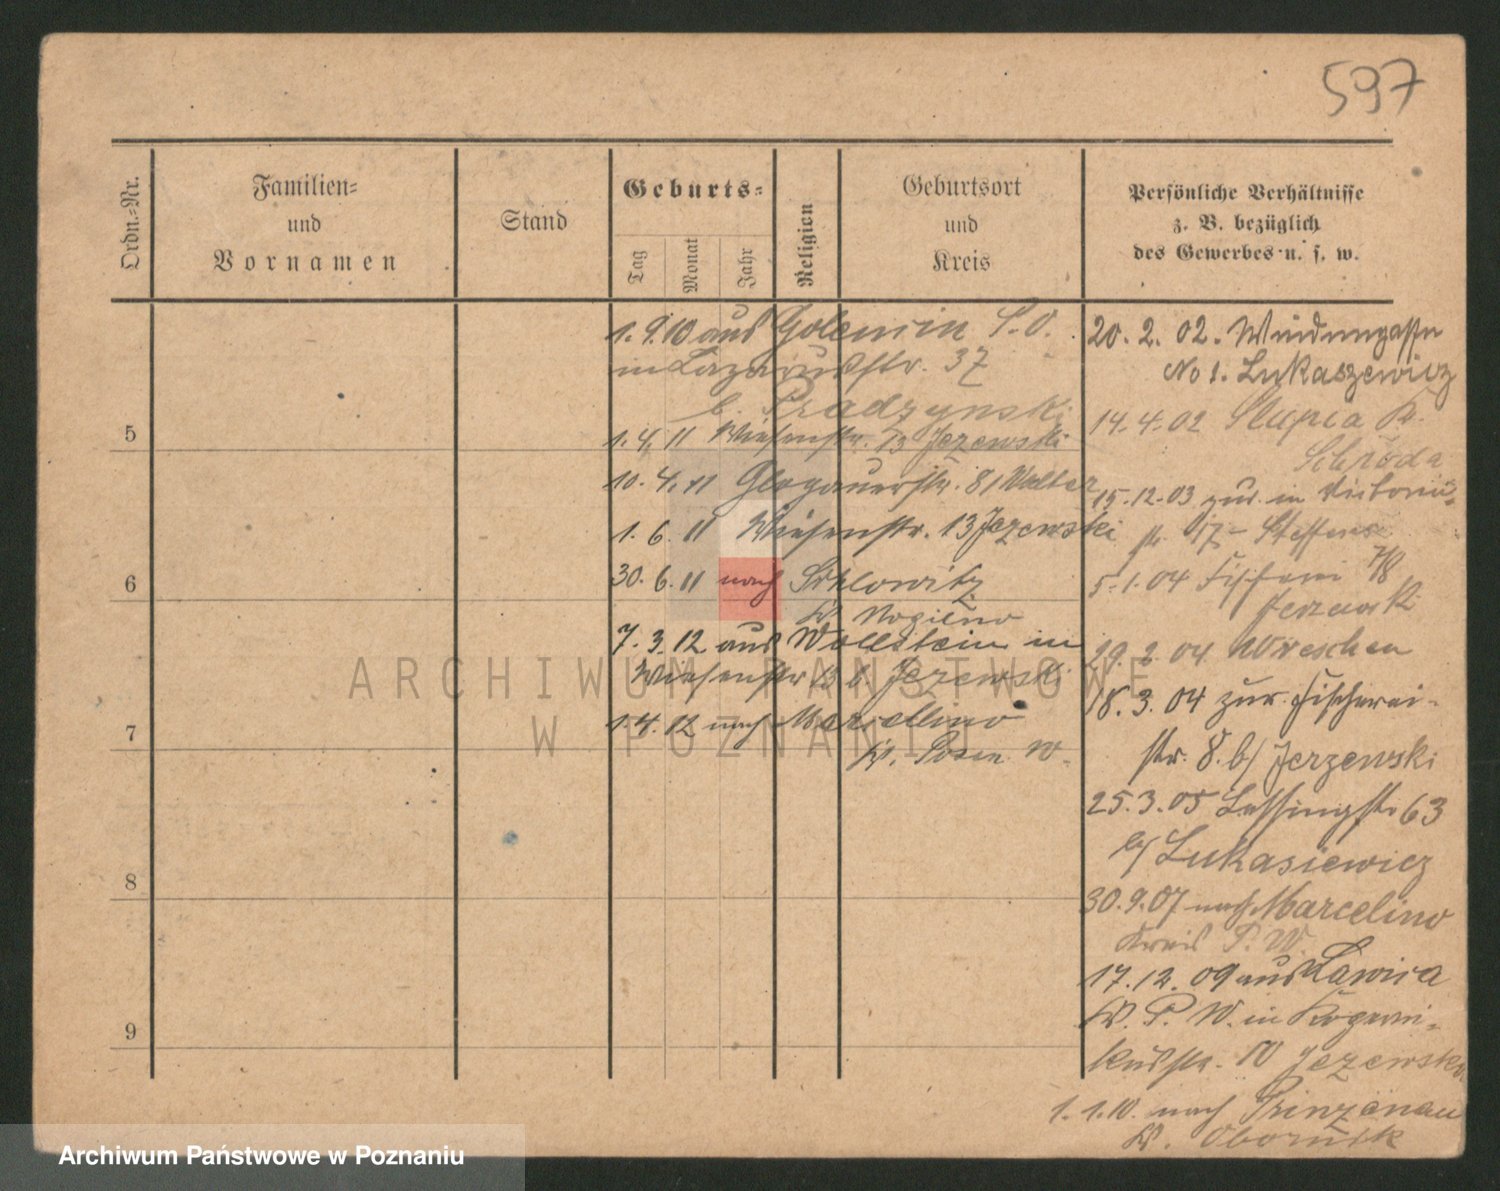 597
Ordn.-Nr.
Familien-
und
Vornamen
Stand
Geburts-
Tag
Monat
Jahr
Religion
Geburtsort
und
Kreis
Persönliche Verhältnisse
z. B. bezüglich
des Gewerbes u. s. w.
5
6
7
8
9
1. 9. 10 aus Golencin P. O.
in Lazarusstr. 37
b. Pradzynski
1. 4. 11 Wiesenstr. 13 Jezewski
10. 4. 11 Glogauerstr. 81 Walter
1. 6. 11 Wiesenstr. 13 Jezewski
30. 6. 11 nach
Kr. Mogilno
7. 3. 12 aus Wollstein in
Wiesenstr 13 b. Jezewski
1. 4. 12 nach Marcellino
Kr. Posen W.
20. 2. 02.
No 1. Lukaszewicz
14. 4. 02 Slupia K.
Schroda
15. 12. 03 zur. in Victoria-
str. 17 Steffens
5. 1. 04 Fischerei 7/8
Jerzewski
29. 2. 04 Wreschen
18. 3. 04 zur. Fischerei-
str. 8. b/ Jerzewski
25. 3. 05 Lessingstr 63
b/ Lukasiewicz
30. 9. 07 nach Marcelino
Kreis P. W.
17. 12. 09 aus Lawica
Kr. P. W. in Koperni-
kusstr. 10 Jezewski
1. 1. 10. nach Prinzenau
Kr. Obornik
ARCHIWUM PAŃSTWOWE
W POZNANIU
Archiwum Państwowe w Poznaniu